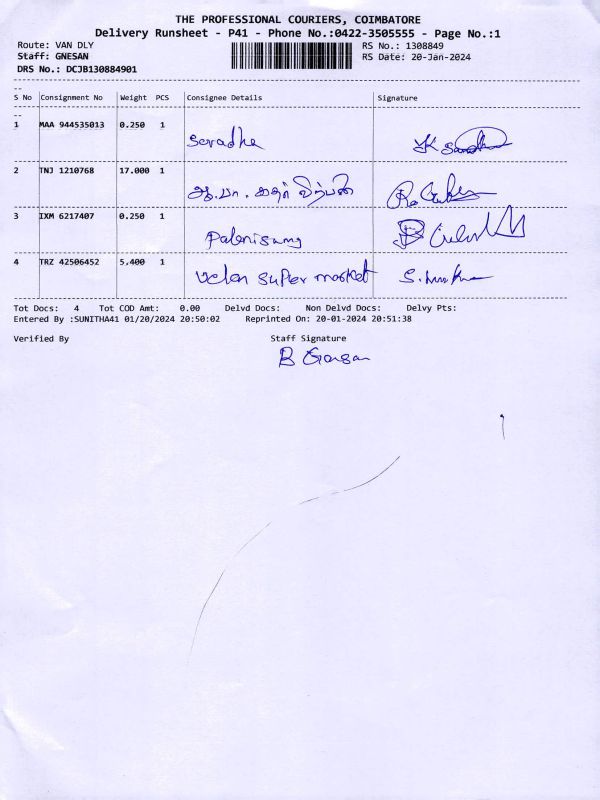 THE PROFESSIONAL COURIERS, COIMBATORE
Delivery Runsheet - P41 - Phone No.:0422-3505555 - Page No.:1
Route: VAN DLY RS No.: 1308849
Staff: GNESAN RS Date: 20-Jan-2024
DRS No.: DCJB130884901
S No Consignment No Weight PCS Consignee Details Signature
1 MAA 944535013 0.250 1
Saradha
2 TNJ 1210768 17.000 1
3 IXM 6217407 0.250 1
Palanisamy
4 TRZ 42506452 5.400 1
Velan super market
Tot Docs: 4 Tot COD Amt: 0.00 Delvd Docs: Non Delvd Docs: Delvy Pts:
Entered By :SUNITHA41 01/20/2024 20:50:02 Reprinted On: 20-01-2024 20:51:38
Verified By Staff Signature